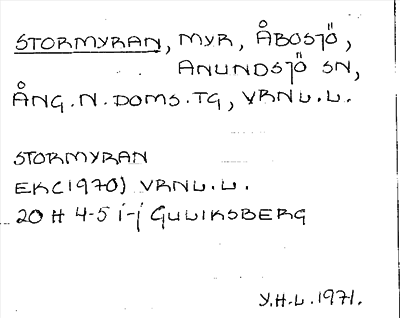 STORMYRAN, MYR, ÅBOSJÖ,
ANUNDSJÖ SN,
ÅNG.N.DOMS.TG, VRNL.L.
STORMYRAN
EK(1970) VRNL.L.
20 H 4-5 i-j GULIKSBERG
Y.H.L.1971.